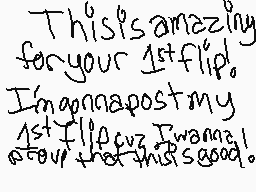 This is amazing
for your 1st flip!
I'm gonna post my
1st flip cuz I wanna
prove that this is good!